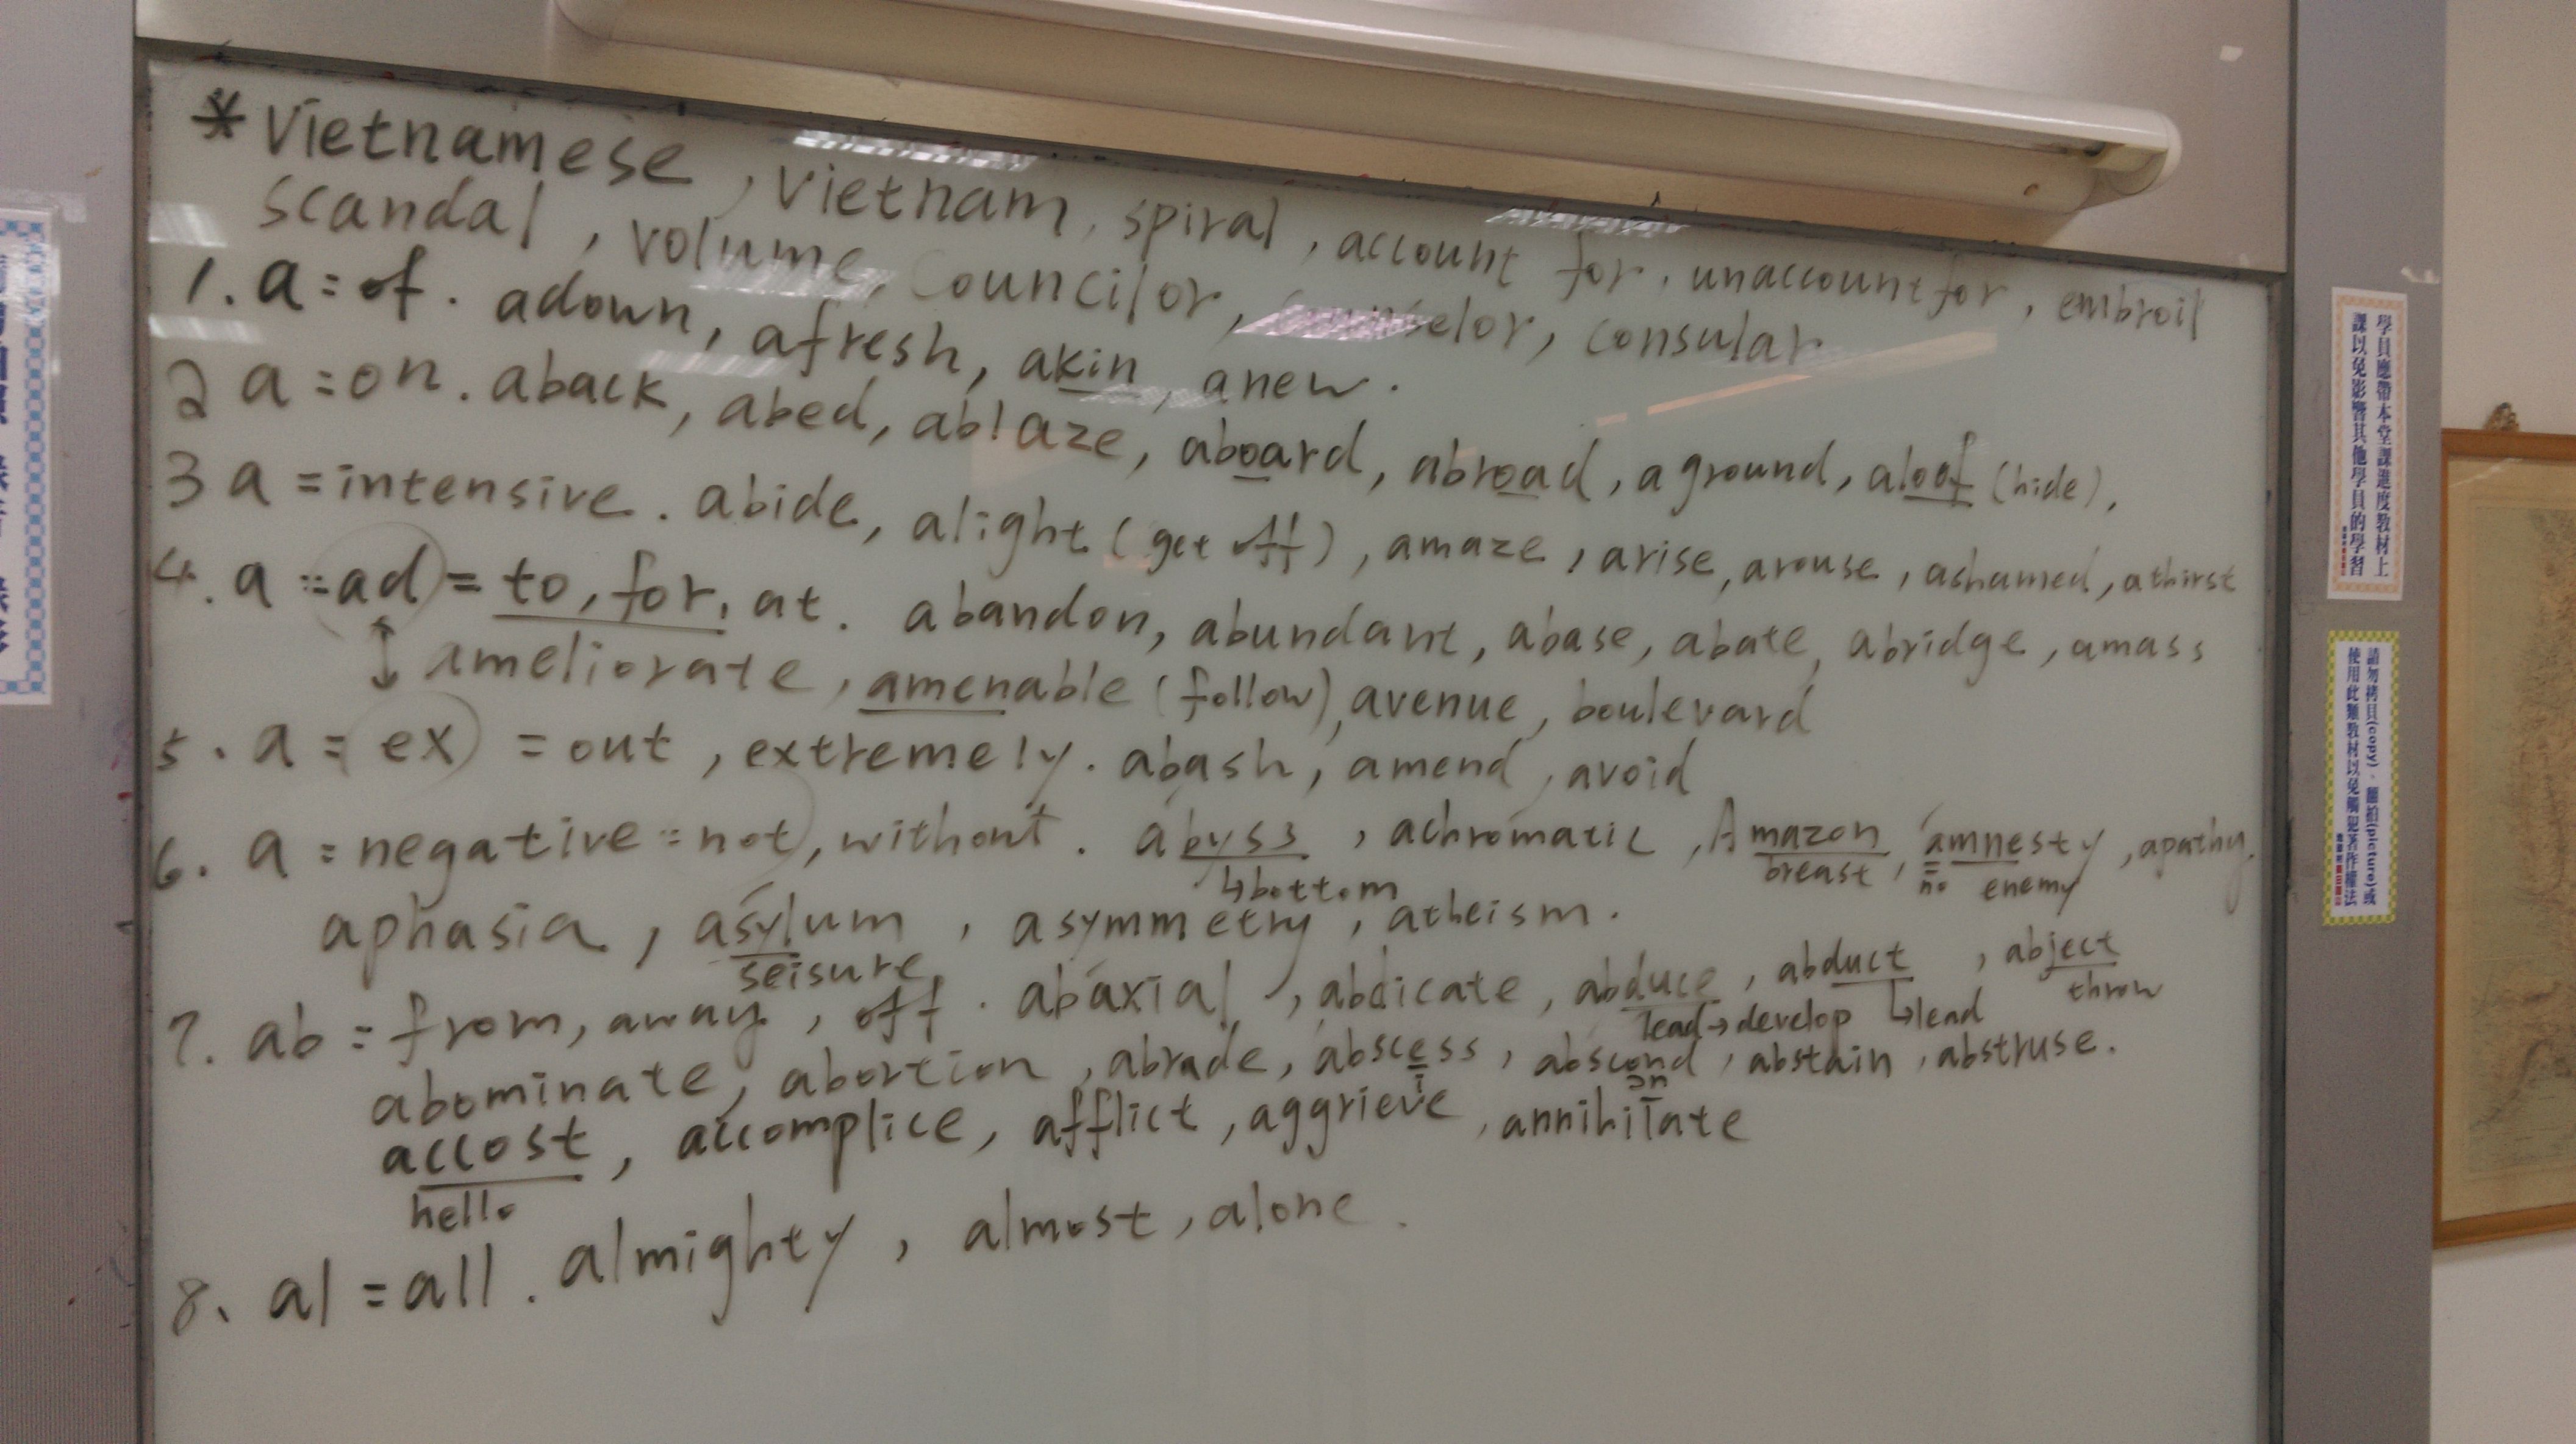 * Vietnamese, Vietnam, spiral, account for, unaccountfor, embroil
scandal, volume, Councilor, counselor, consular
1. a = of. adown, afresh, akin, anew.
2 a = on. aback, abed, ablaze, aboard, abroad, aground, aloof (hide),
3 a = intensive. abide, alight (get off), amaze, arise, arouse, ashamed, athirst
4. a = ad = to, for, at. abandon, abundant, abase, abate, abridge, amass
↕ ameliorate, amenable (follow), avenue, boulevard
5. a = ex = out, extremely. abash, amend, avoid
6. a = negative = not, without. abyss, achromatic, Amazon, amnesty, apathy,
↳bottom breast no enemy
aphasia, asylum, asymmetry, atheism.
seisure
7. ab = from, away, off. abaxial, abdicate, abduce, abduct, abject
lead→develop ↳lead throw
abominate, abortion, abrade, abscess, abscond, abstain, abstruse.
i on
accost, accomplice, afflict, aggrieve, annihilate
hello
8. al = all. almighty, almost, alone.
學員應帶本堂課進度教材上
課以免影響其他學員的學習
請勿拷貝(copy)、翻拍(picture)或
使用此類教材以免觸犯著作權法